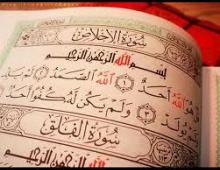 سُورَةُ الإِخْلَاصِ
بِسْمِ اللَّهِ الرَّحْمَٰنِ الرَّحِيمِ
هُوَ اللَّهُ أَحَدٌ ١ اللَّهُ الصَّمَدُ ٢ لَمْ يَلِدْ
يُولَدْ ٣ وَلَمْ يَكُن لَّهُ كُفُوًا أَحَدٌ
سُورَةُ الفَلَقِ
بِسْمِ اللَّهِ الرَّحْمَٰنِ الرَّحِيمِ